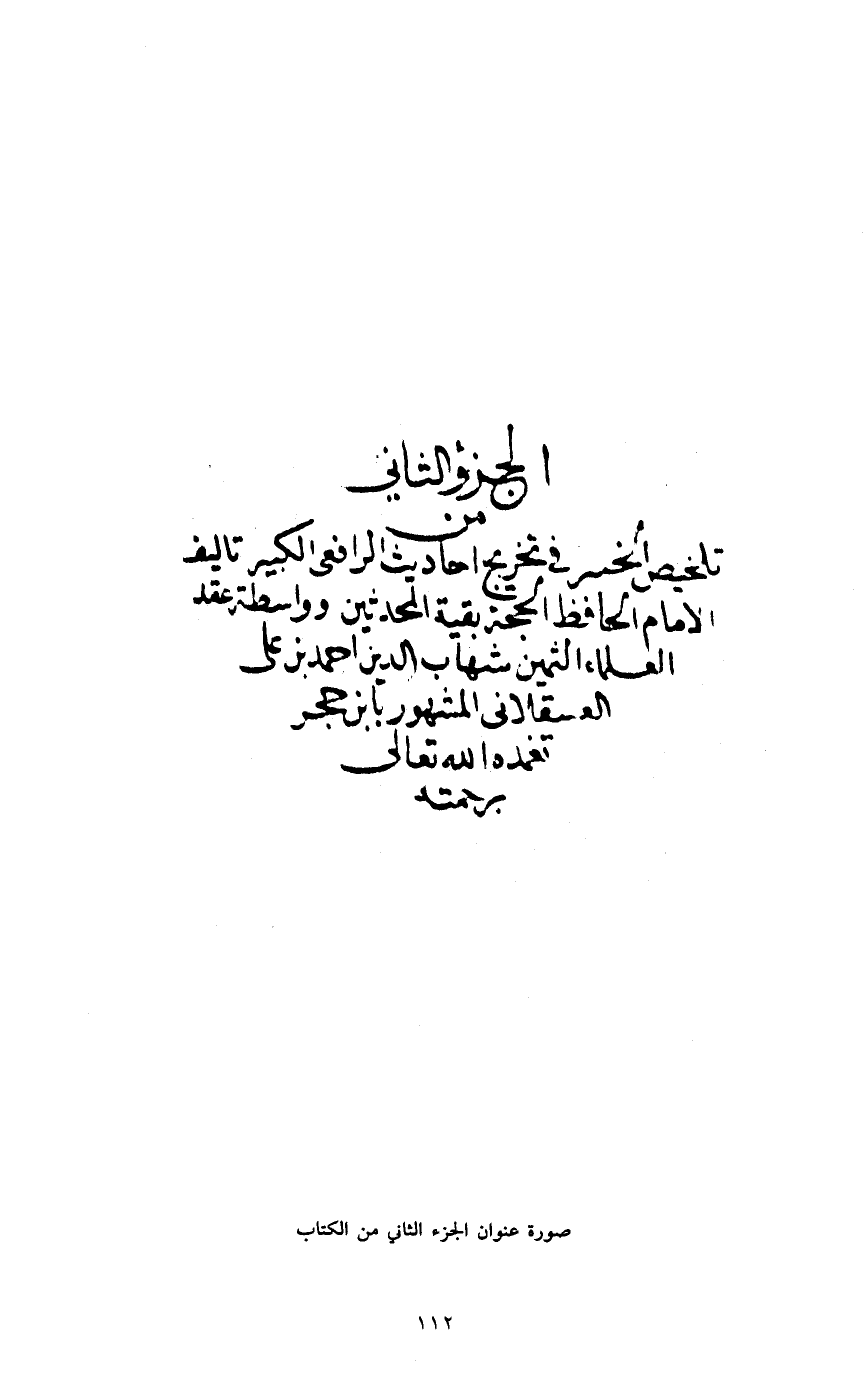 الجزؤ الثاني
من
تلخيص الحبير في تخريج احاديث الرافعى الكبير تاليف
الامام الحافظ الحجة بقية المحدثين وواسطة عقد
العلماء الثمين شهاب الدين احمد بن على
العسقلانى المشهور بابن حجر
تغمده الله تعالى
برحمته
صورة عنوان الجزء الثاني من الكتاب
١١٢